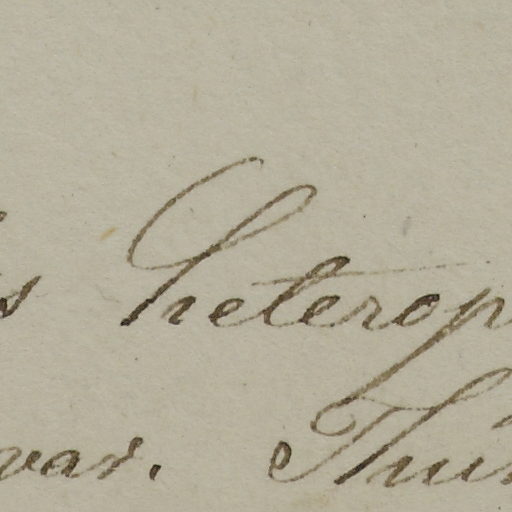 s heterop
var. Thun